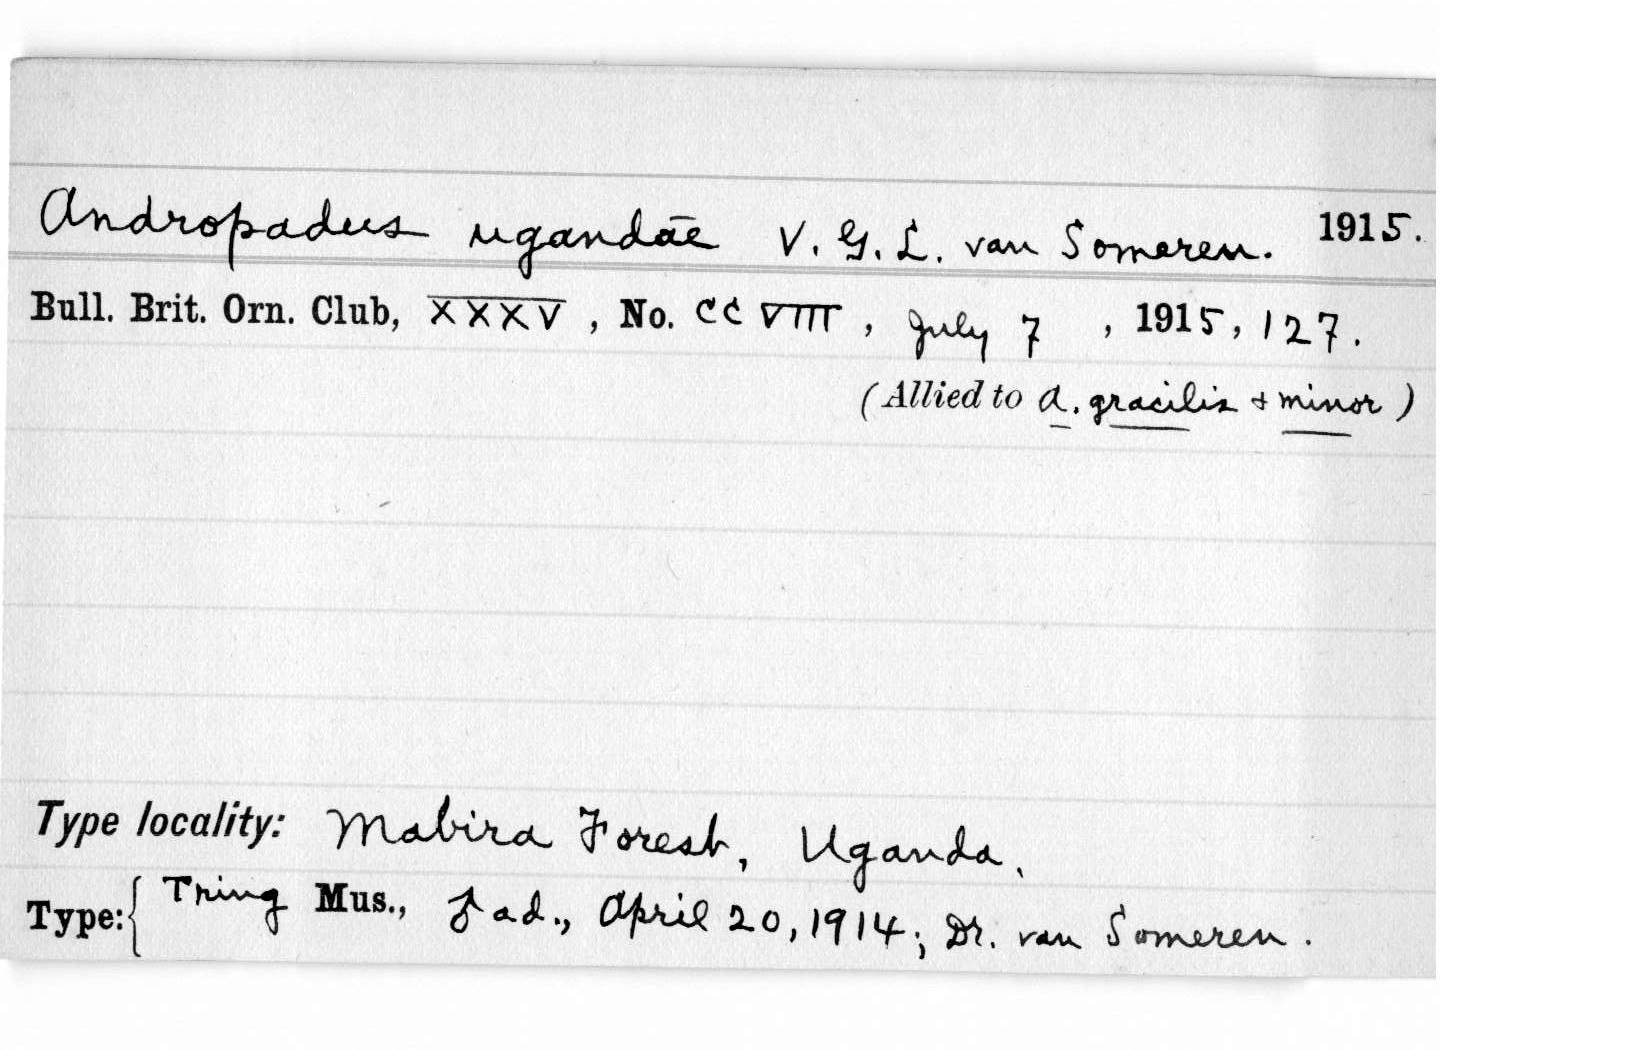 Andropadus ugandae V. G. L. van Someren. 1915.
Bull. Brit. Orn. Club, XXXV, No. CCVIII, July 7, 1915, 127.
(Allied to A. gracilis & minor)
Type locality: Mabira Forest, Uganda.
Type: { Tring Mus., ♂ ad., April 20, 1914; Dr. van Someren.